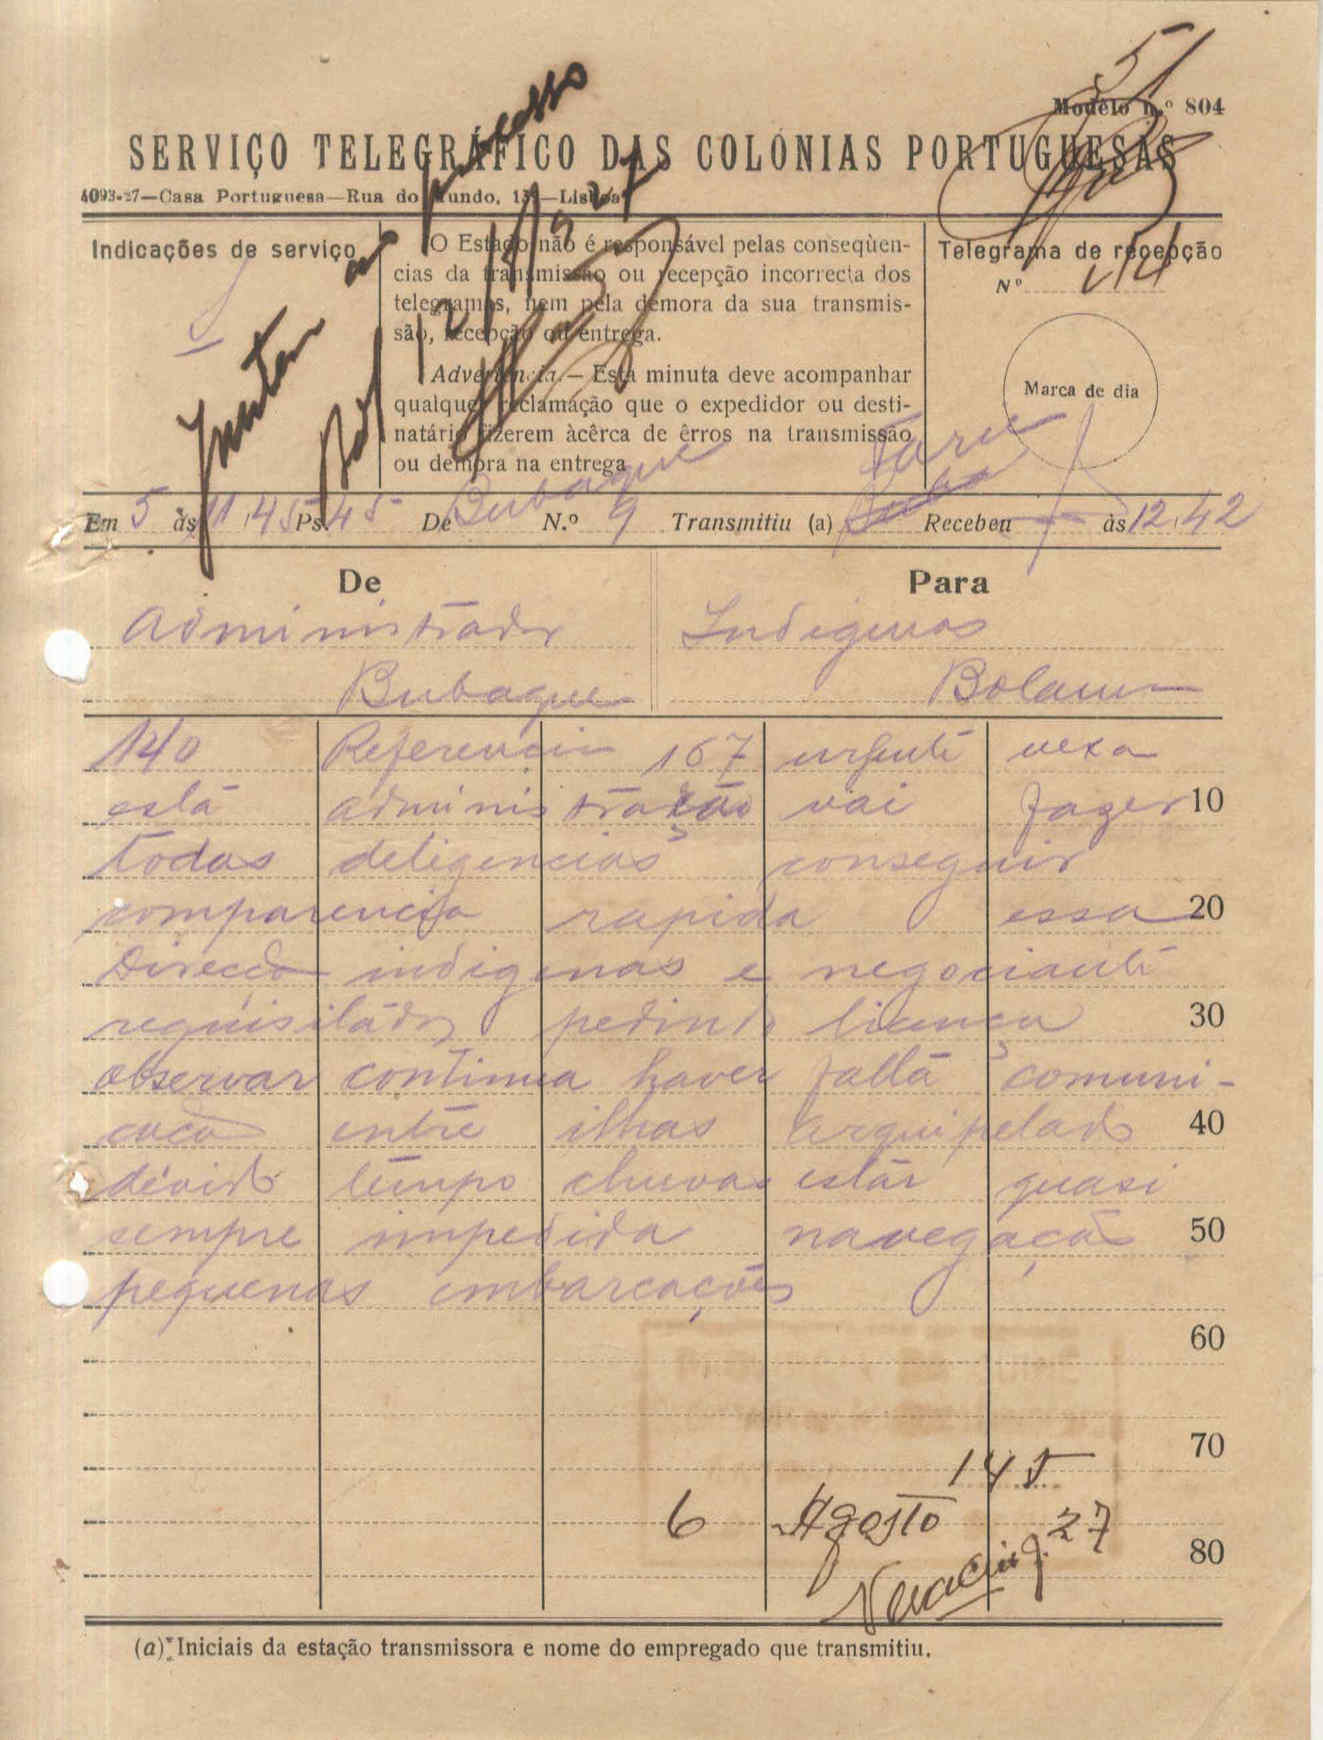 Modelo n.º 804
SERVIÇO TELEGRÁFICO DAS COLÓNIAS PORTUGUESAS
4093-27—Casa Portuguesa—Rua do Mundo, 13—Lisboa
Juntar ao processo
Bol 12/8/927
Indicações de serviço
O Estado não é responsável pelas conseqùen-
cias da transmissão ou recepção incorrecta dos
telegramas, nem pela demora da sua transmis-
são, recepção ou entrega.
Advertência.— Esta minuta deve acompanhar
qualquer reclamação que o expedidor ou desti-
natário fizerem àcêrca de êrros na transmissão
ou demora na entrega
Telegrama de recepção
Nº
Marca de dia
Em 5 às 11,45 Ps. 45 De Bubaque N.º 9 Transmitiu (a) Recebeu às 12,42
De Para
Administrador Indigenas
Bubaque Bolama
140 Referencia 167 urgente vexa
está administração vai fazer 10
todas deligencias conseguir
comparencia rapida essa 20
Direcção indigenas e negociante
requisitados pedindo licença 30
observar continua haver falta comuni-
cação entre ilhas arquipelado 40
devido tempo chuvas estar quasi
sempre impedida navegação 50
pequenas embarcações
60
70
145
6 Agosto 27
80
(a) Iniciais da estação transmissora e nome do empregado que transmitiu.